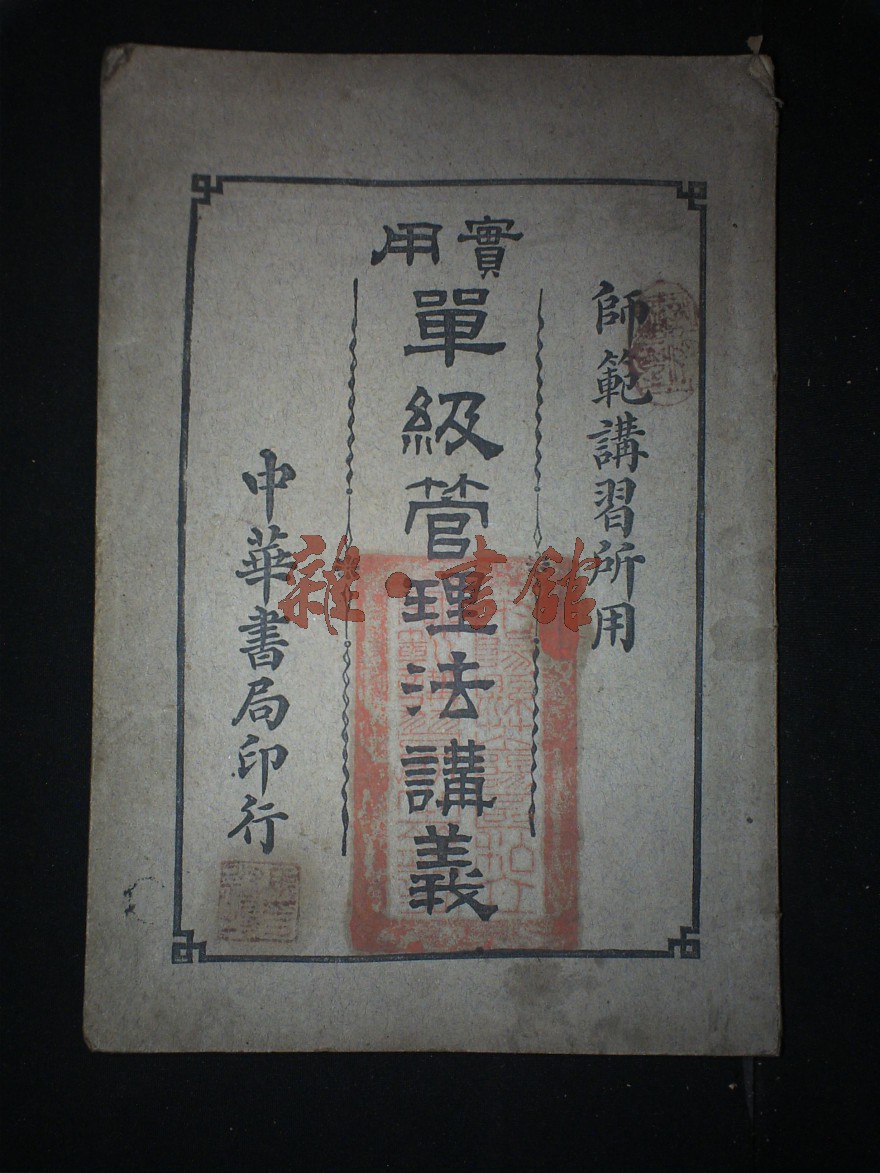 師範講習所用
實用
單級管理法講義
中華書局印行
雜·書館